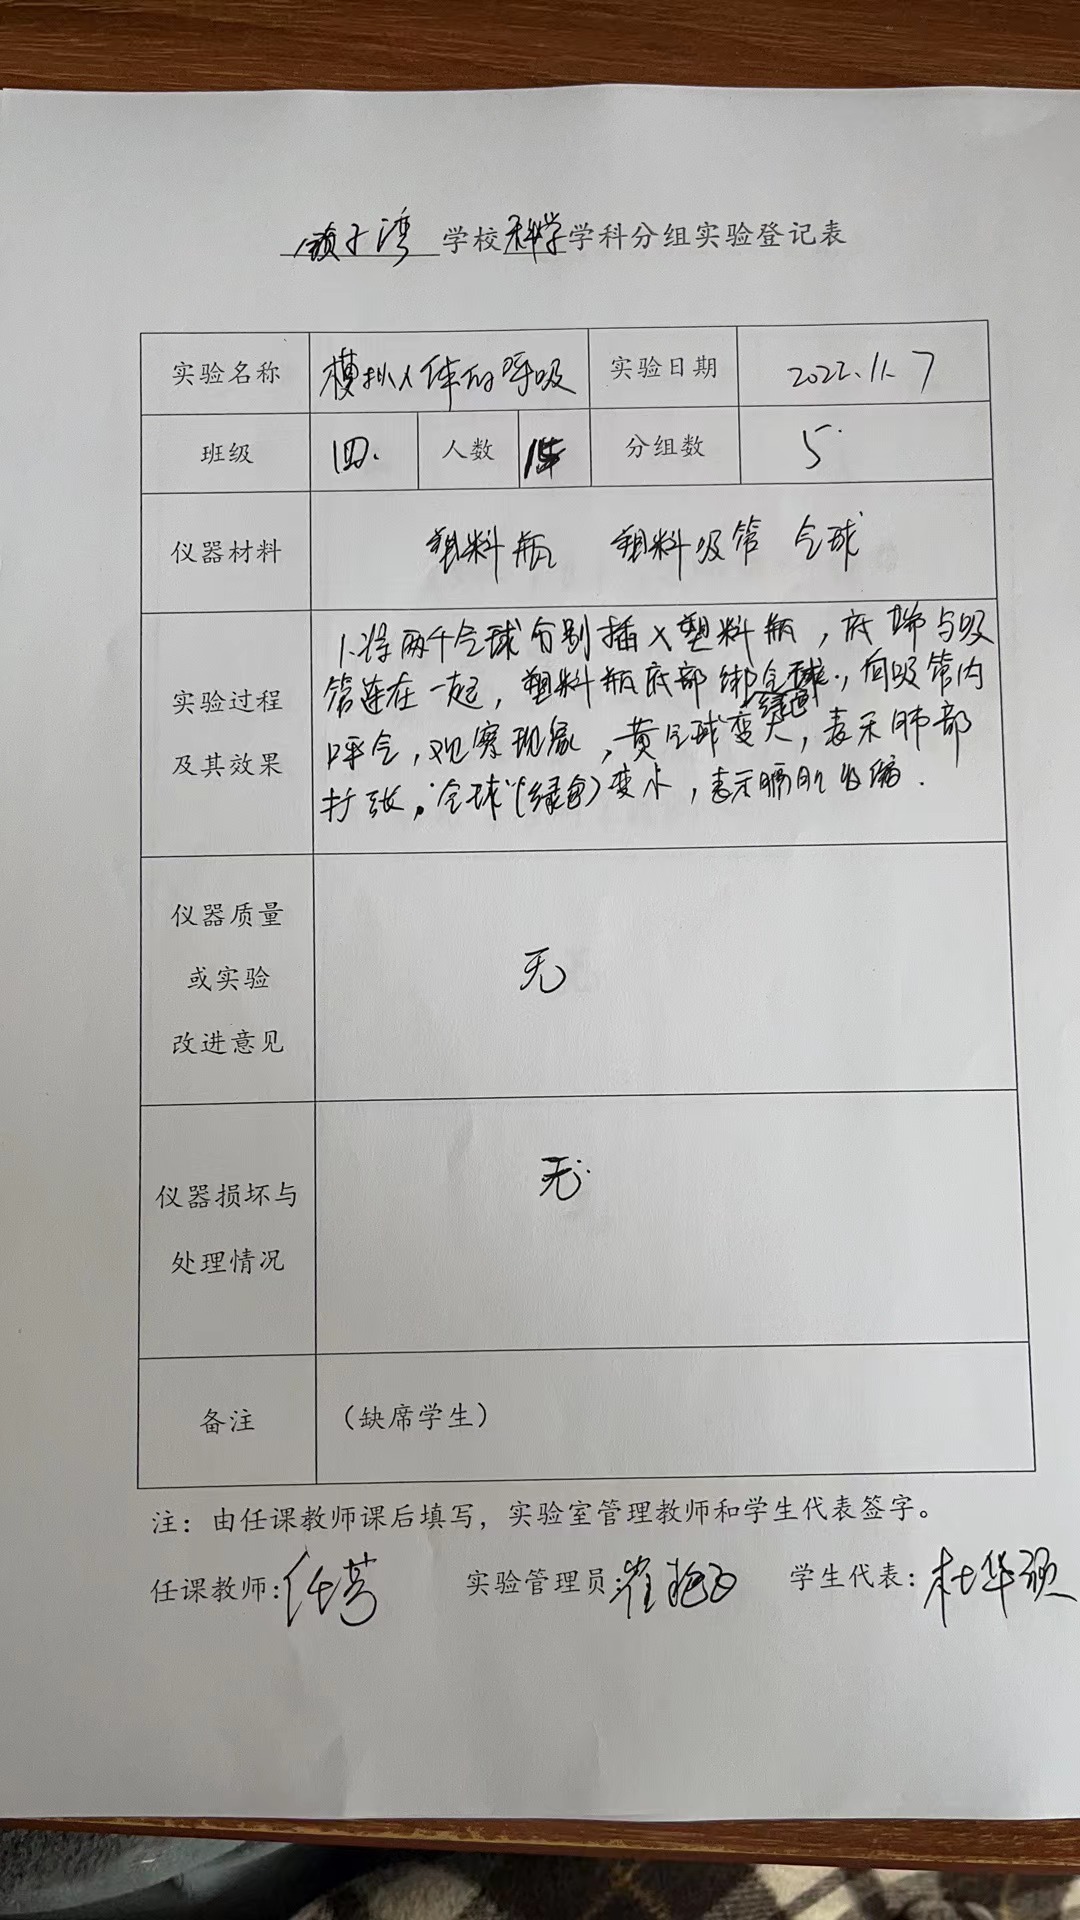 子湾 学校科学学科分组实验登记表
实验名称 模拟人体的呼吸 实验日期 2022.11.7
班级 四. 人数 分组数 5
仪器材料 塑料瓶 塑料吸管 气球
实验过程
及其效果
1.将两个气球分别插入塑料瓶,底端与吸
管连在一起,塑料瓶底部绑气球,向吸管内
绿色
呼气,观察现象,黄气球变大,表示肺部
扩张,气球(绿色)变小,表示膈肌收缩.
仪器质量
或实验
改进意见
无
仪器损坏与
处理情况
无
备注 (缺席学生)
注:由任课教师课后填写,实验室管理教师和学生代表签字。
任课教师:任芳 实验管理员:崔 学生代表:杜华硕